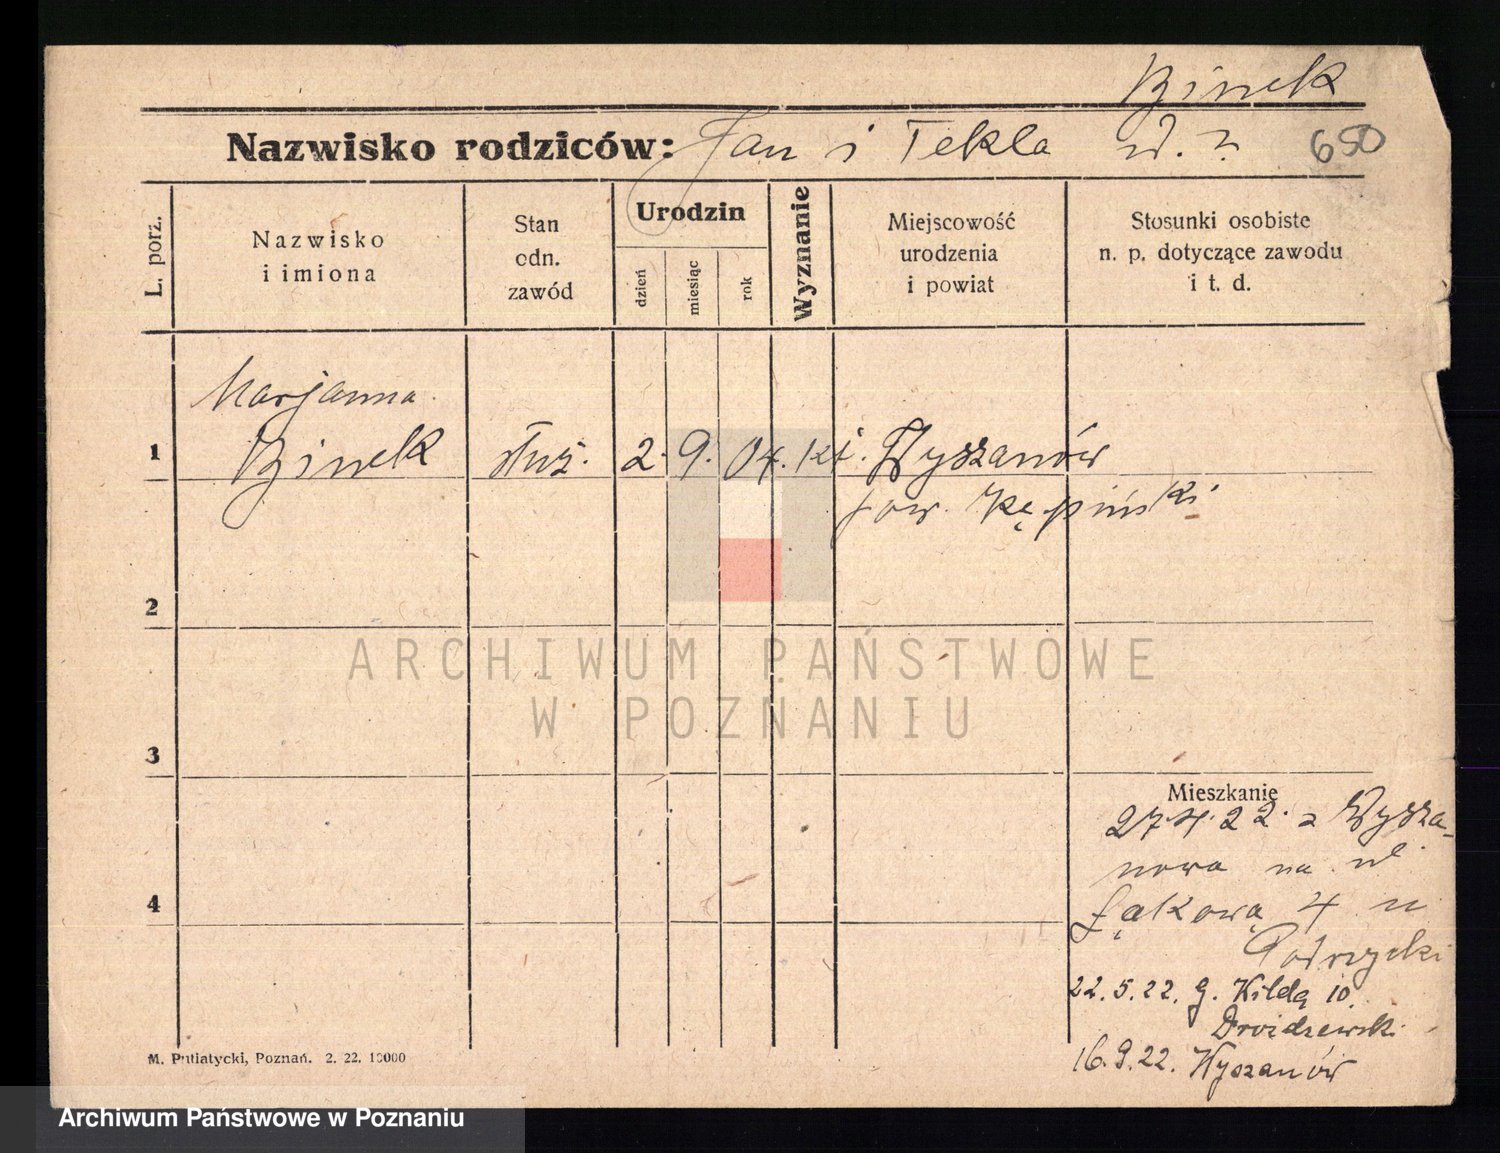 Binek
Nazwisko rodziców: Jan i Tekla
650
L. porz.
Nazwisko
i imiona
Stan
odn.
zawód
Urodzin
dzień
miesiąc
rok
Wyznanie
Miejscowość
urodzenia
i powiat
Stosunki osobiste
n. p. dotyczące zawodu
i t. d.
Marjanna
1 Binek służ. 2. 9. 04. kt. Wyszanów
pow. Kępiński
2
3
4
Mieszkanie
22 z Wysza-
nowa na ul.
Łąkową 4 u
22.5.22. G. Wildą 10
16.9.22. Wyszanów
M. Putiatycki, Poznań. 2. 22. 10000
ARCHIWUM PAŃSTWOWE
W POZNANIU
Archiwum Państwowe w Poznaniu